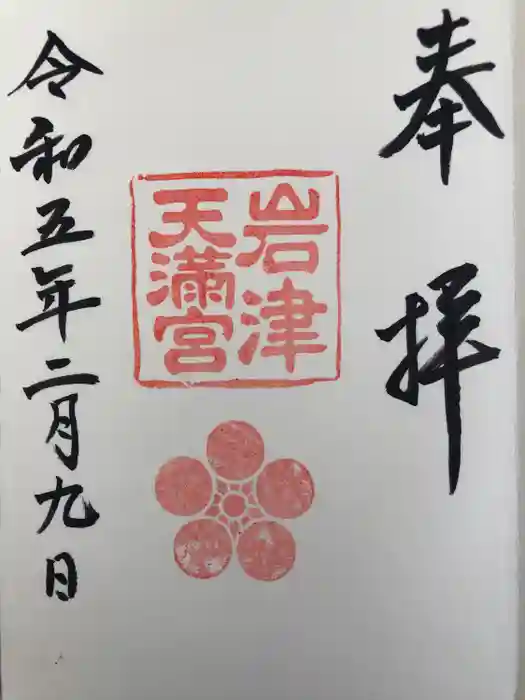 奉拝
岩津
天満宮
令和五年二月九日